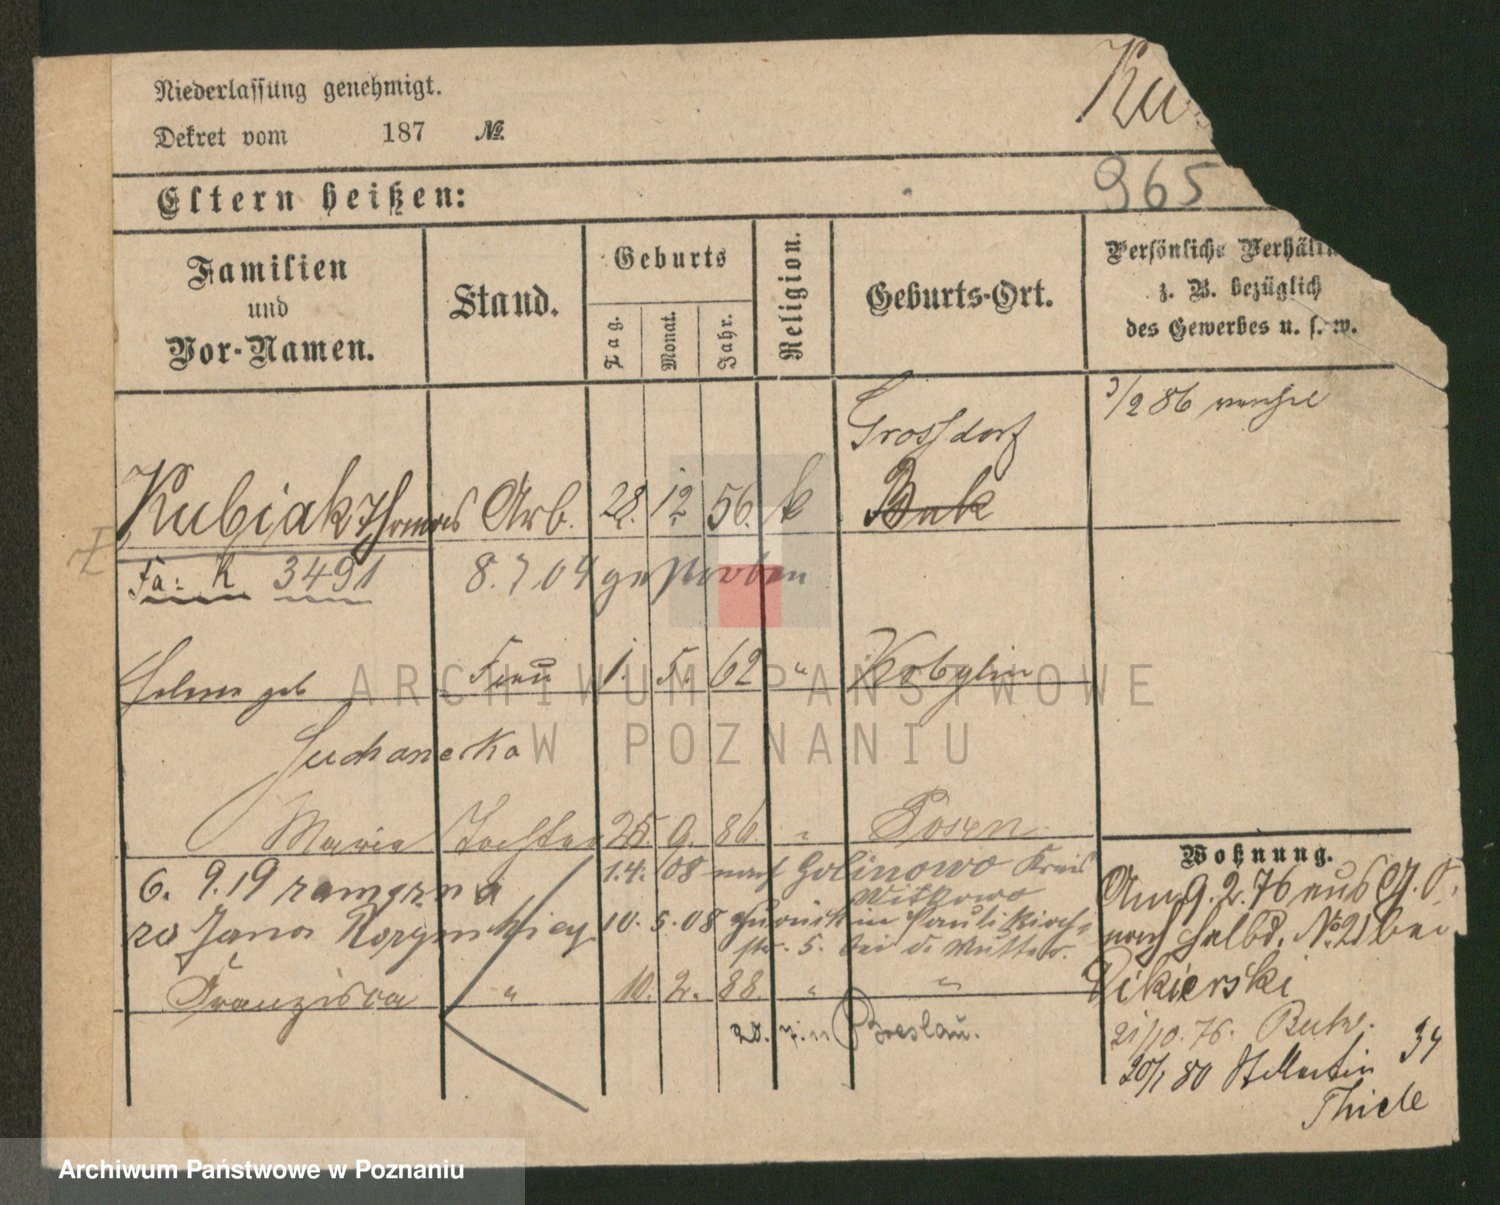 Niederlassung genehmigt.
Ku
Dekret vom 187 №.
965
Eltern heißen:
Familien und Vor-Namen.
Stand.
Geburts
Tag.
Monat.
Jahr.
Religion.
Geburts-Ort.
Persönliche Verhält
z. B. bezüglich
des Gewerbes u. s. w.
3/2 86
Grossdorf
Kubiak Thomas Arb. 28. 12. 56. k Buk
Fa: K 3491 8.7 04 gestorben
geb Frau 1. 5. 62 " Kobylin
Suchanecka
Maria Tochter 25. 9. 86. " Posen
6. 9.19 zamężna
1.4. 08 nach Golinowo Kreis
Witkowo
za Jana
10. 5. 08 zurück in Paulikirch-
str. 5. bei d Mutter.
Franziska " 10. 2. 88. " "
20. 7. 11 Breslau.
Wohnung.
Am 9. 2. 76 aus
nach Halbd. № 21 bei
Pikierski
21/10. 76. Buk.
20/1 80 St Martin 34
Thiele
ARCHIWUM PAŃSTWOWE
W POZNANIU
Archiwum Państwowe w Poznaniu